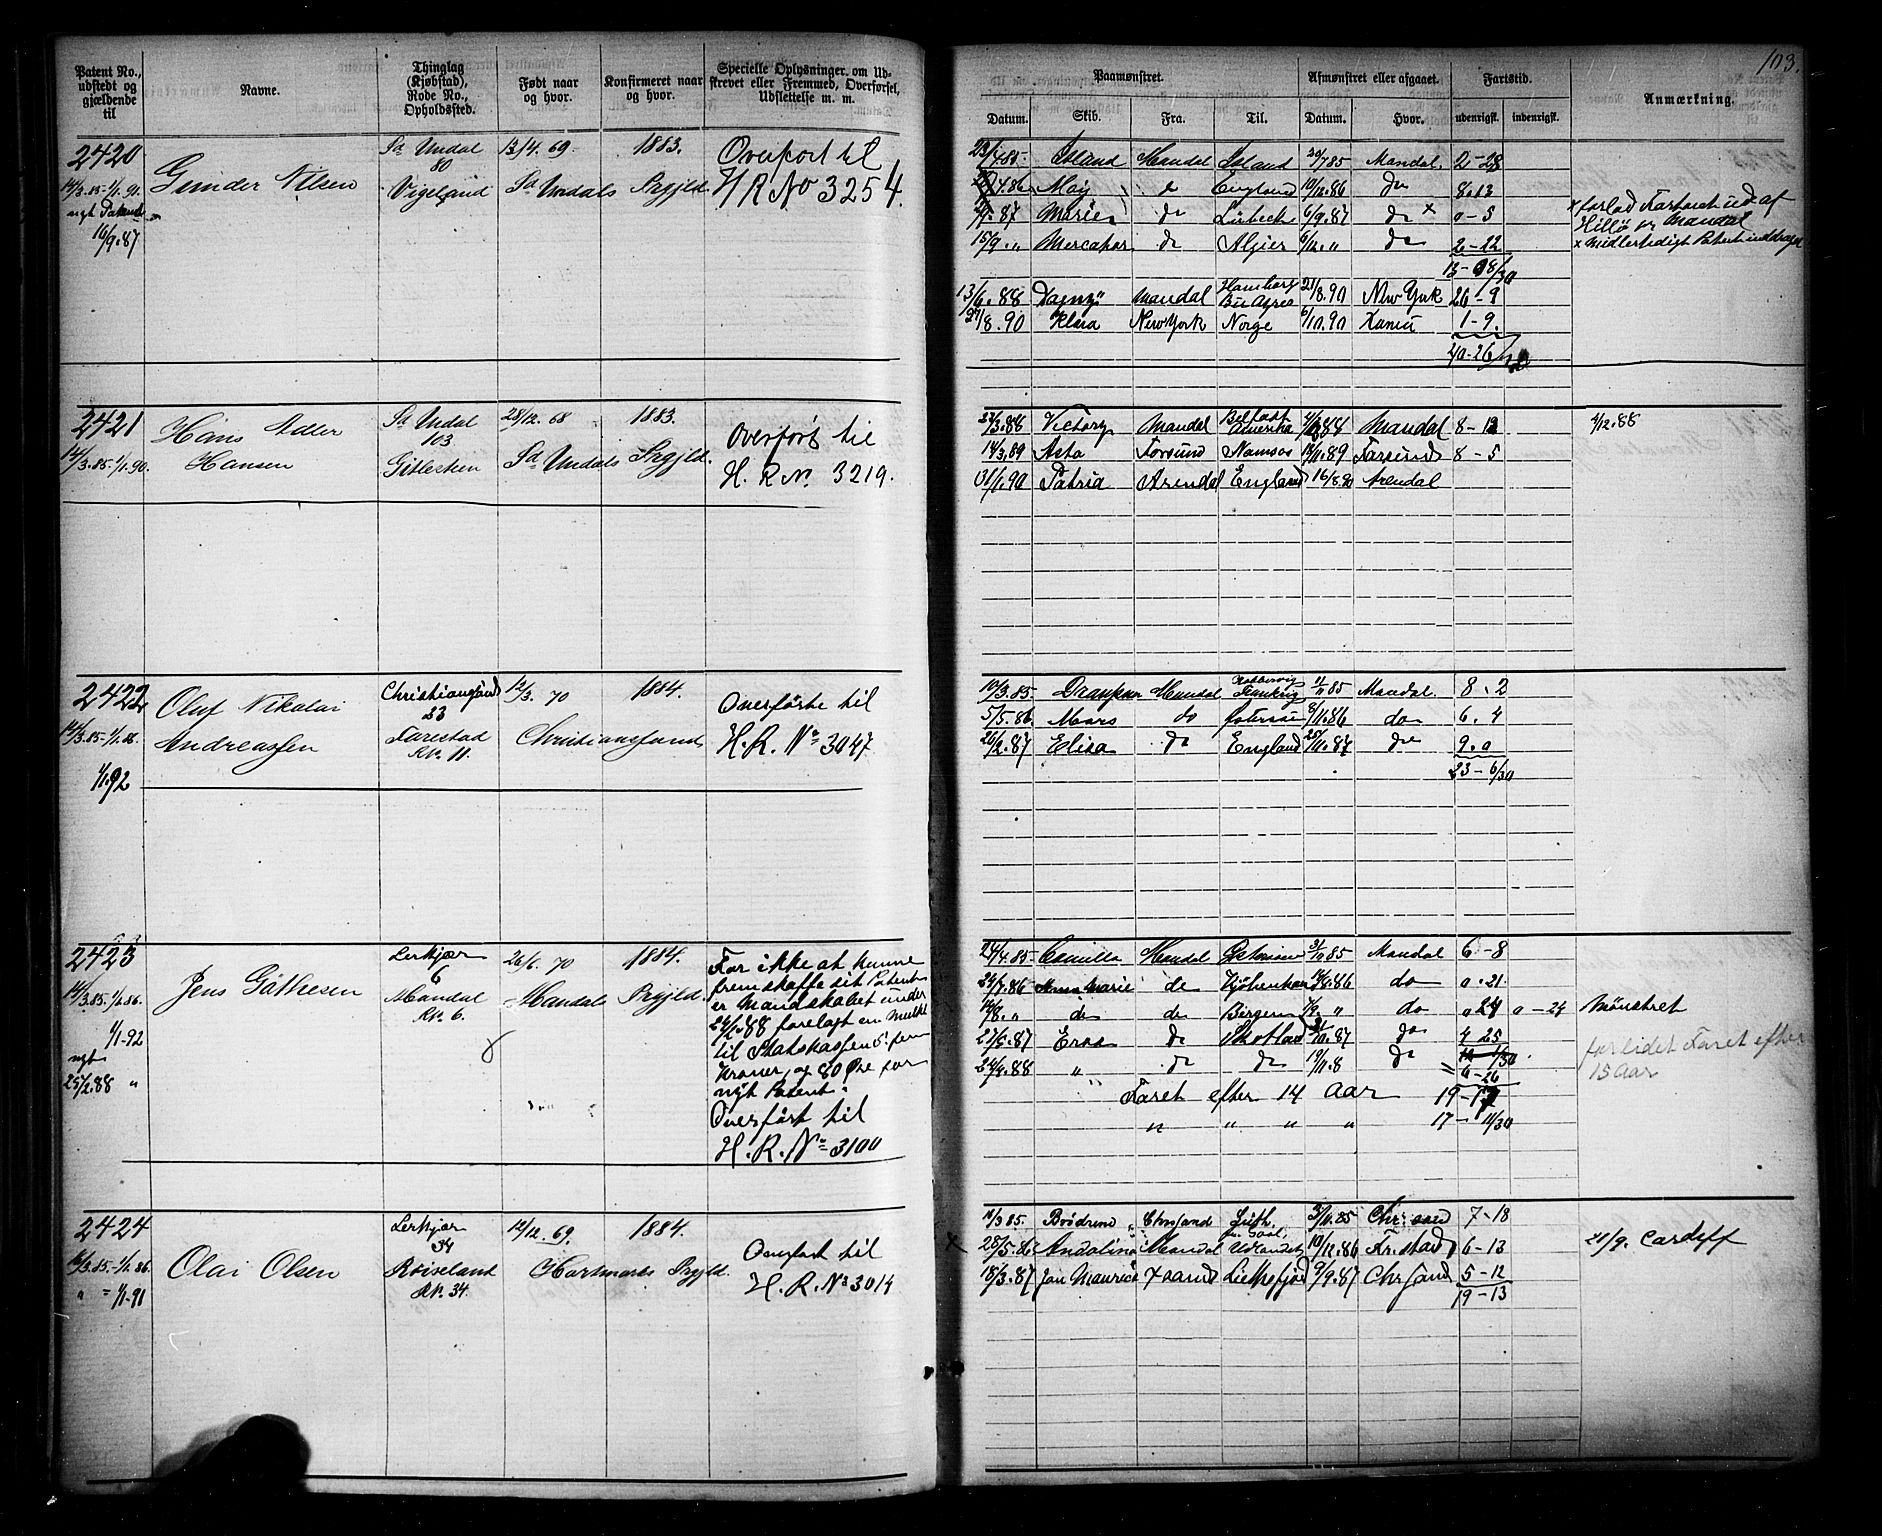 103.
Patent No., udstedt og gjældende til
Navne.
Thinglag (Kjøbstad), Rode No., Opholdssted.
Født naar og hvor.
Konfirmeret naar og hvor.
Specielle Oplysninger om Udskrevet eller Fremmed, Overførsel, Udslettelse m. m.
Paamønstret.
Afmønstret eller afgaaet.
Fartstid.
Anmærkning.
Datum. Skib. Fra. Til. Datum. Hvor. udenrigsk. indenrigsk.
2420
14/3.85-1/1.91.
nyt Patent
16/9.87
Gunder Nilsen
Sd Undal
80
Vigeland
13/4.69.
Sd Undals
1883.
Prgjld.
Overført til
H R No 3254.
23/4.85 Island Mandal Island 30/7 85 Mandal. 2-28
4.86 May England 10/12.86 do 8.13
87 Marie do Lübeck 6/9.87 do x 0-5
15/9. " Mercator do Algier 6/12. " do 2-22
x forlod Farten ud af
Hillø pr Mandal
x Midlertidigt Patent inddraget
13/6.88 Dagny Mandal Hamborg Bu: Ayres 21/8.90 New York 26-9
27/8.90 Klara New York Norge 6/10.90 1-9.
40-26/30
2421
14/3.85-1/1.90.
Hans Adler
Hansen
Sd Undal
103
28/12.68
Sd Undals
1883.
Prgjld.
Overført til
H. R No. 3219.
23/3.88 Victory Mandal Belfast Amerika 88 Mandal 8-12
4/12.88
14/3.89 Asta Farsund Namsos 89 Farsund 8-5
31/1.90 Patria Arendal England 16/8.90 Arendal
2422
14/3.85-1/1.86.
1/1.92
Oluf Nikolai
Andreassen
Christiansand
23
Farestad
RNo. 11.
12/3. 70
Christianssand
1884.
Overførte til
H. R. No 3047
10/3.85 Draupner Mandal 11/11 85 Mandal. 8.2
5/5.86 Mars do 8/11.86 do 6.4
26/2.87 Elisa do England 25/11.87 do 9.0
23-6/30
2423
14/3.85.-1/1.86.
1/1-92
nyt
25/2.88 "
Jens Gäthesen
Lerkjær
6
Mandal
RNo. 6.
26/6. 70
Mandals
1884.
Prgjld.
For ikke at kunne
fremskaffe sit Patent
er Mandskabet under
24/2.88 forelagt en Mulkt
til Statskassen 5: fem
Kroner, og 80 Øre for
nyt Patent.
Overført til
H. R. No 3100
24/4.85 Camilla Mandal 85 Mandal 6-8
24/7.86 Anna Marie do Kjøbenhavn 14/8.86 do 0.21
19/8. " do do Bergen " do 0 24 0-24 Mønstret
23/5.87 Eros do Skotland 10.87 do 4 25
24/4.88 " do do 19/11.8 do
6-26
forlidet Faret efter
15 Aar
Faret efter 14 Aar 19-17
" " " " 17-11/30
2424
14/3.85.-1/1.86.
" = 1/1-91
Olai Olsen
Lerkjær
34
Røiseland
RNo. 34.
12/12.69.
Hartmarks
1884.
Prgjld.
Overført til
H. R. No 3014
14/3 85. Brødrene Chrsand Leith 3/11.85 Chr: sand 7-18
x 28/5.86 Andalina Mandal Udlandet 10/12.86 Fr.stad 6-13
21/9. Cardiff
18/3.87 Jan Maurice Xsand 9/9.87 Chrsand 5-12
19-13